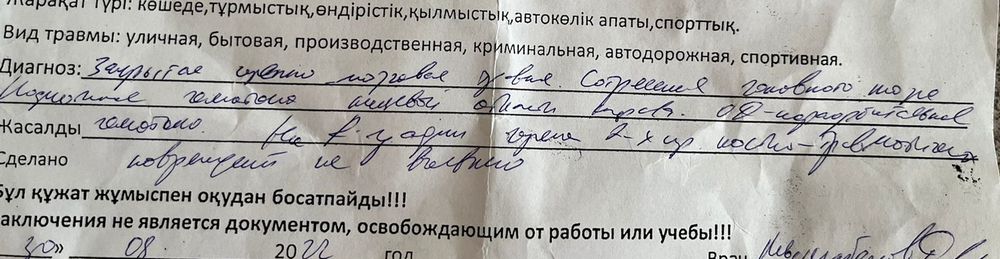 Жарақат түрі: көшеде,тұрмыстық,өндірістік,қылмыстық,автокөлік апаты,спорттық.
Вид травмы: уличная, бытовая, производственная, криминальная, автодорожная, спортивная.
Диагноз: Закрытая черепно мозговая травма. Сотрясения головного мозга
Подкожная гематома лобной области справа. OD-параорбитальная
Жасалды гематома. На R-графии черепа 2-х пр. костно-травматических
Сделано повреждений не выявлено
Бұл құжат жұмыспен оқудан босатпайды!!!
аключения не является документом, освобождающим от работы или учебы!!!
30» 08 2022 год Врач